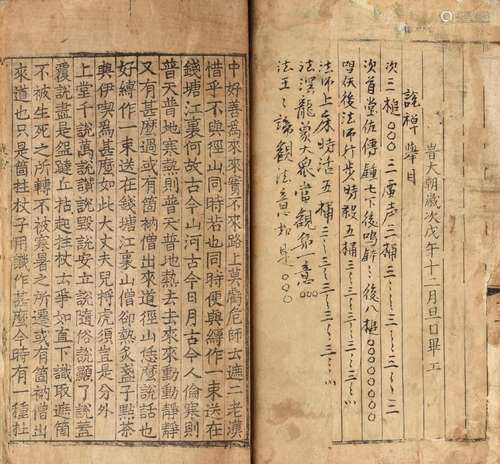 旹大朝歲次戊午十二月旦日畢工
說禪擧目
次三槌○○○三雷声三桶三〻三〻三〻三
次首堂佐傳鍾七下後鳴鈸後八槌○○○○○○○○
後法师行步時殺五桶三〻三〻三〻三〻
法师上床時活五桶三〻三〻三〻
法深龍蒙大衆當觀第一意○○○
法王〻諦觀法意如是○○○
中好善為來來實不來路上莫虧危師云遮二老漢
惜乎不與徑山同時若也同時便與縛作一束送在
錢塘江裏何故古今山河古今日月古今人倫寒則
普天普地寒熱則普天普地熱去去來來動動靜靜
又有甚麼過或有箇衲僧出來道徑山恁麽說話也
好縛作一束送在錢塘江裏山僧却熱炙盞子點茶
與伊喫為甚麼如此大丈夫兒捋虎須豈是分外
上堂千說萬說讃說毁說安立說隨俗說顯了說盖
覆說盡是丘拈起拄杖云爭如直下識取遮箇
不被生死之所轉不被寒暑之所遷或有箇衲僧出
來道也只是箇拄杖子用識作甚麼今時有一種杜